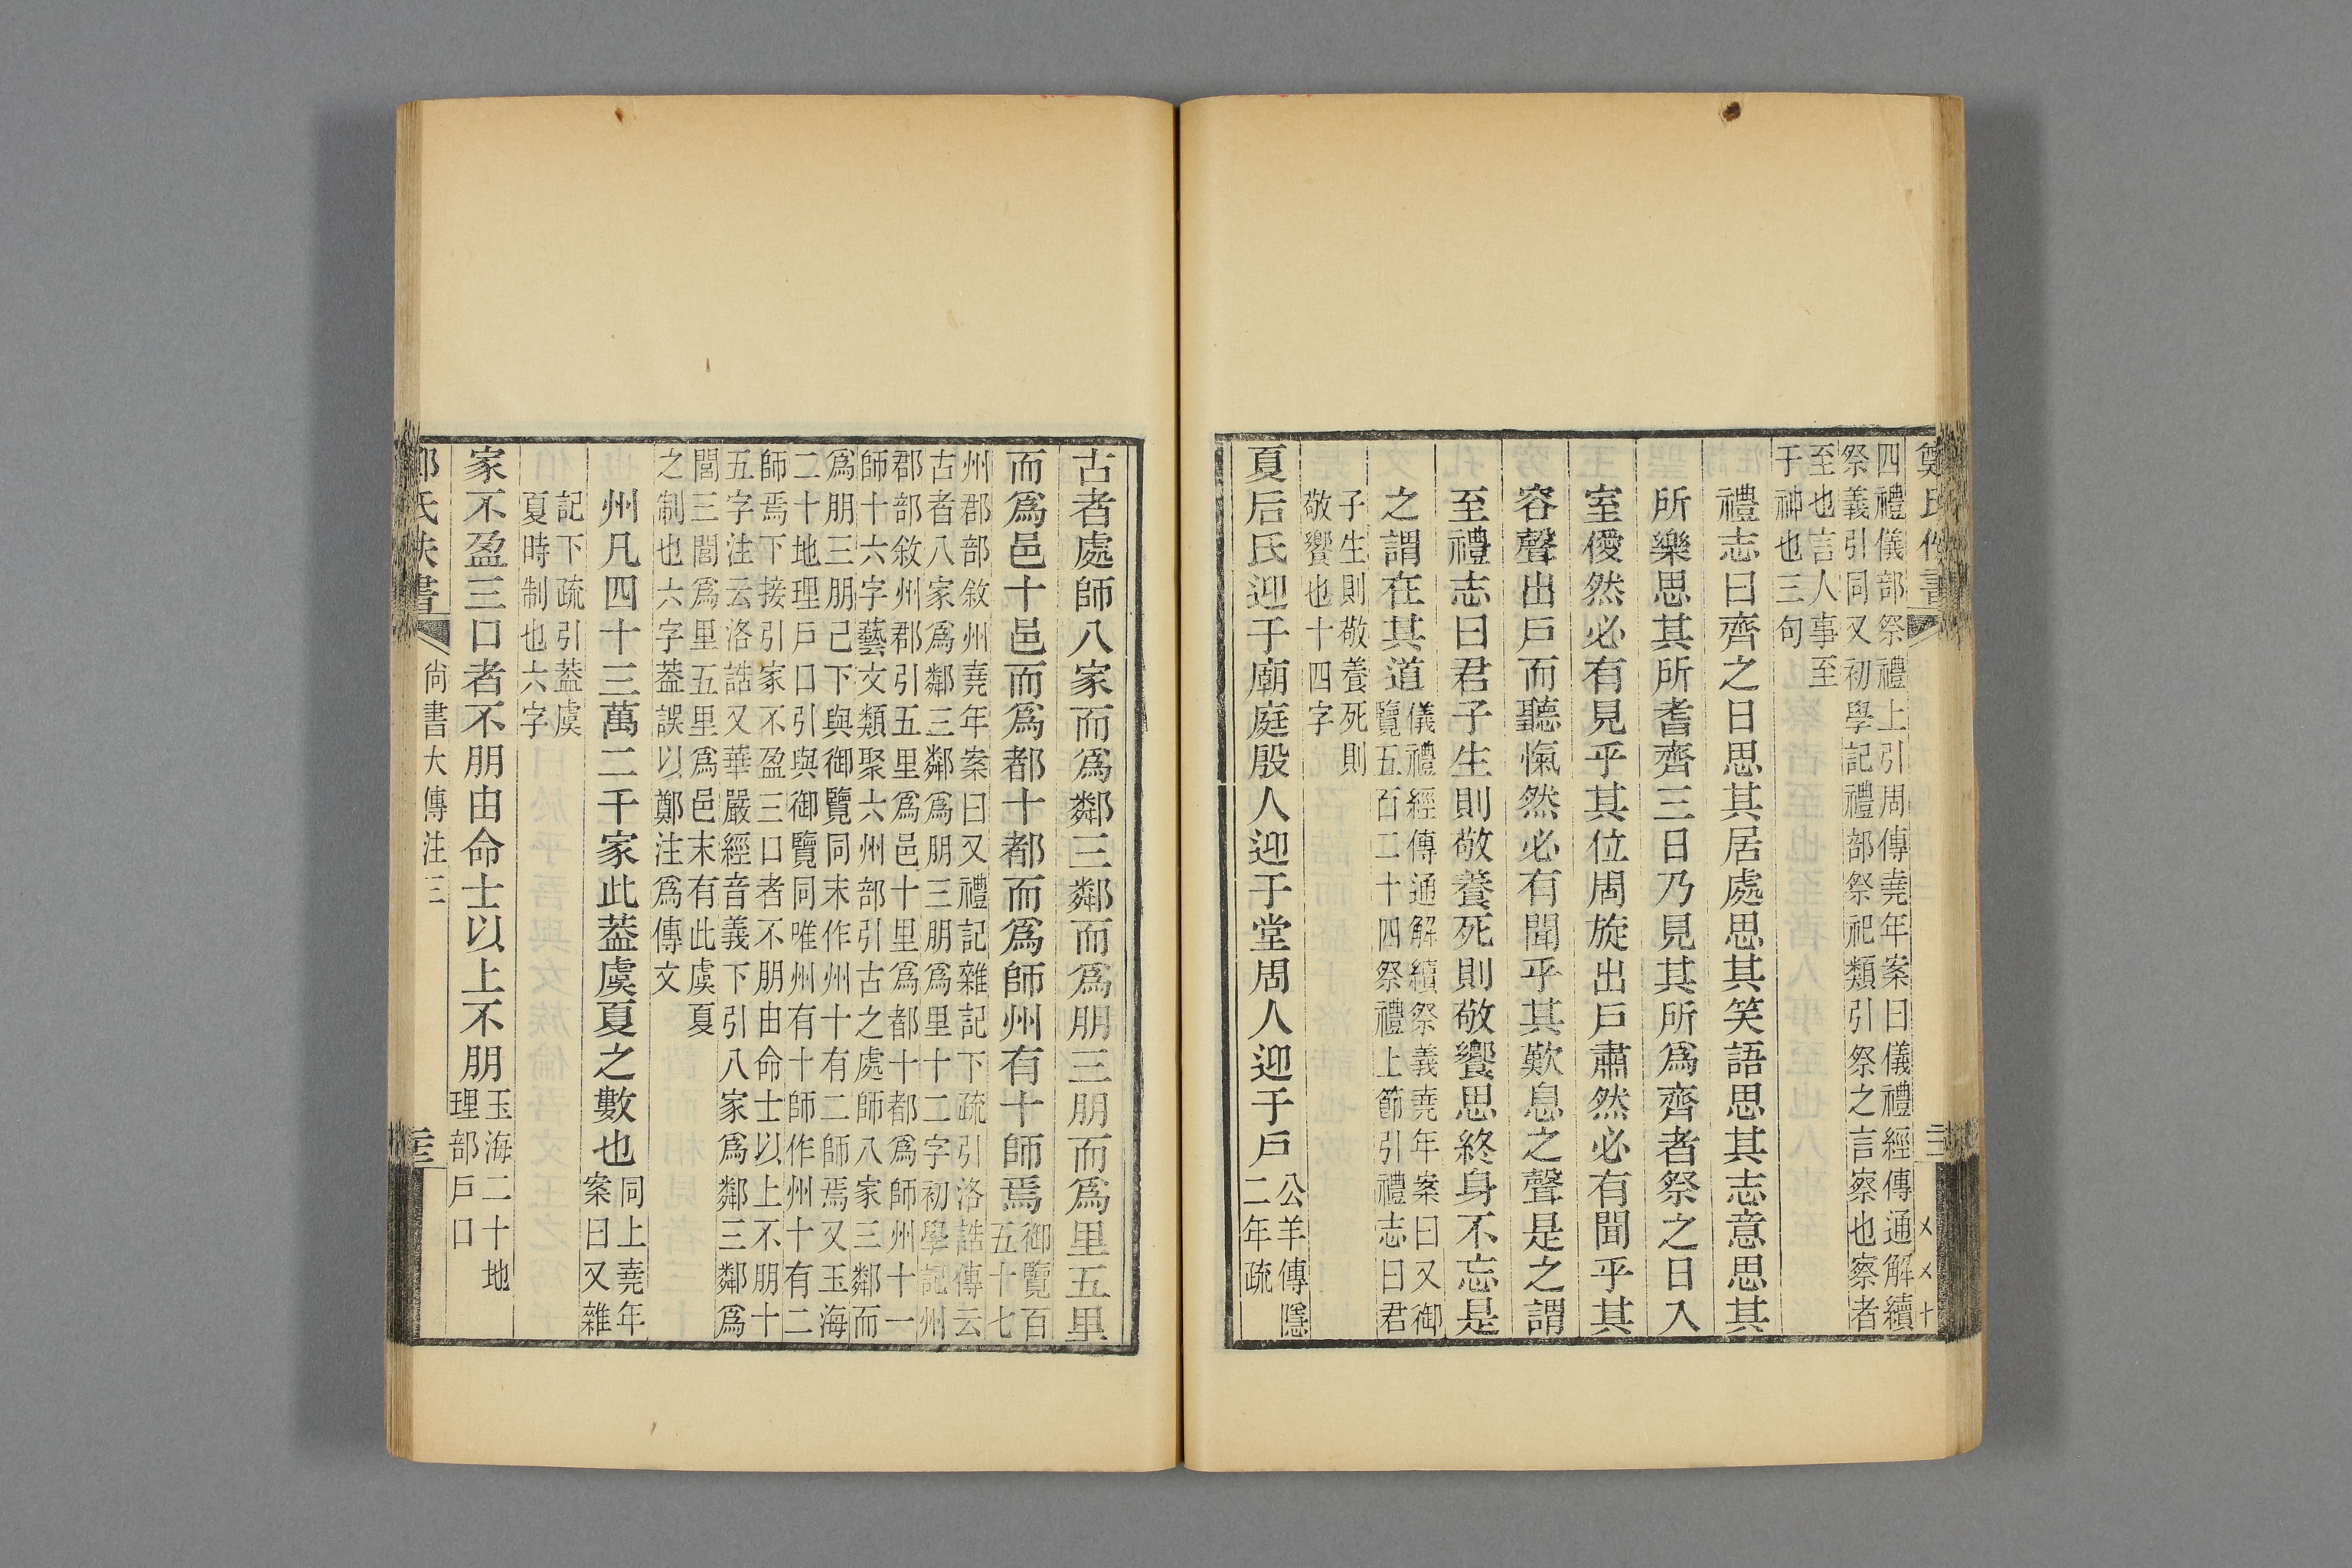 四禮儀部祭禮上引周傳堯年案曰儀禮經傳通解續
祭義引同又初學記禮部祭祀類引祭之言察也察者
至也言人事至
于神也三句
禮志曰齊之日思其居處思其笑語思其志意思其
所樂思其所耆齊三日乃見其所爲齊者祭之日入
室僾然必有見乎其位周旋出戶肅然必有聞乎其
容聲出戶而聽愾然必有聞乎其歎息之聲是之謂
至禮志曰君子生則敬養死則敬饗思終身不忘是
之謂在其道
儀禮經傳通解續祭義堯年案曰又御
覽五百二十四祭禮上節引禮志曰君
子生則敬養死則
敬饗也十四字
夏后氏迎于廟庭殷人迎于堂周人迎于戶
公羊傳隱
二年疏
古者處師八家而爲鄰三鄰而爲朋三朋而爲里五里
而爲邑十邑而爲都十都而爲師州有十師焉
御覽百
五十七
州郡部敘州堯年案曰又禮記雜記下疏引洛誥傳云
古者八家爲鄰三鄰爲朋三朋爲里十二字初學記州
郡部敘州郡引五里爲邑十里爲都十都爲師州十一
師十六字藝文類聚六州部引古之處師八家三鄰而
爲朋三朋己下與御覽同末作州十有二師焉又玉海
二十地理戶口引與御覽同唯州有十師作州十有二
師焉下接引家不盈三口者不朋由命士以上不朋十
五字注云洛誥又華嚴經音義下引八家爲鄰三鄰爲
閭三閭爲里五里爲邑末有此虞夏
之制也六字葢誤以鄭注爲傳文
州凡四十三萬二千家此葢虞夏之數也
同上堯年
案曰又雜
記下疏引葢虞
夏時制也六字
家不盈三口者不朋由命士以上不朋
玉海二十地
理部戶口
尙書大傳注三